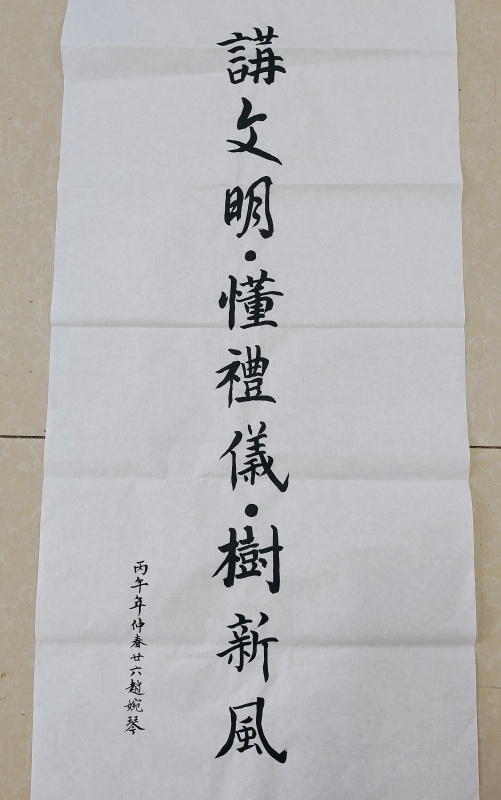 講文明·懂禮儀·樹新風
丙午年仲春廿六趙婉琴